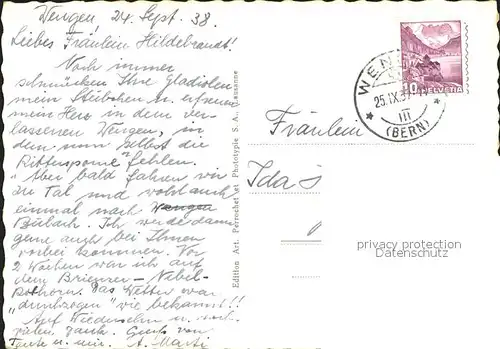 Wengen 24. Sept. 38.
Liebes Fräulein Hildebrandt!
Noch immer
schmücken Ihre Gladiolen
mein Stübchen u. erfreuen
mein Herz in dem ver-
lassenen Wengen, in
dem nun selbst die
Rittersporne fehlen.
Aber bald fahren wir
zu Tal und wohl auch
einmal nach Wengen
Bülach. Ich werde dann
gerne auch bei Ihnen
vorbei kommen. Vor
2 Wochen war ich auf
dem Brienzer-
Rothorn. Das Wetter war
wie bekannt!!
Auf Wiedersehn u.
vielen Dank. Gruss von
Tante u. mir. A. Marti
Edition Art. Perrochet et Phototypie S. A., Lausanne
HELVETIA
WENGEN
25.IX.3
III
(BERN)
Fräulein
Ida
privacy protection
Datenschutz